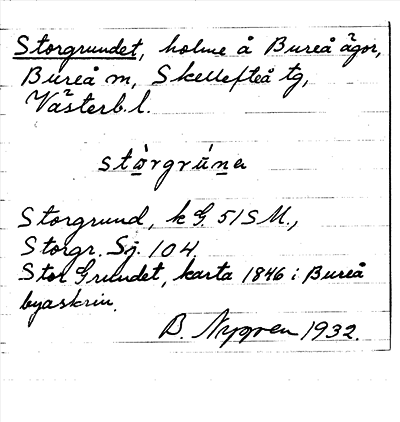 Storgrundet, holme å Bureå ägor,
Bureå m, Skellefteå tg,
Västerb. l.
stòrgrúna
Storgrund, kG. 51 S M.,
Storgr. Sj. 104.
Stor Grundet, karta 1846 i Bureå
byaskrin.
B. Nygren 1932.